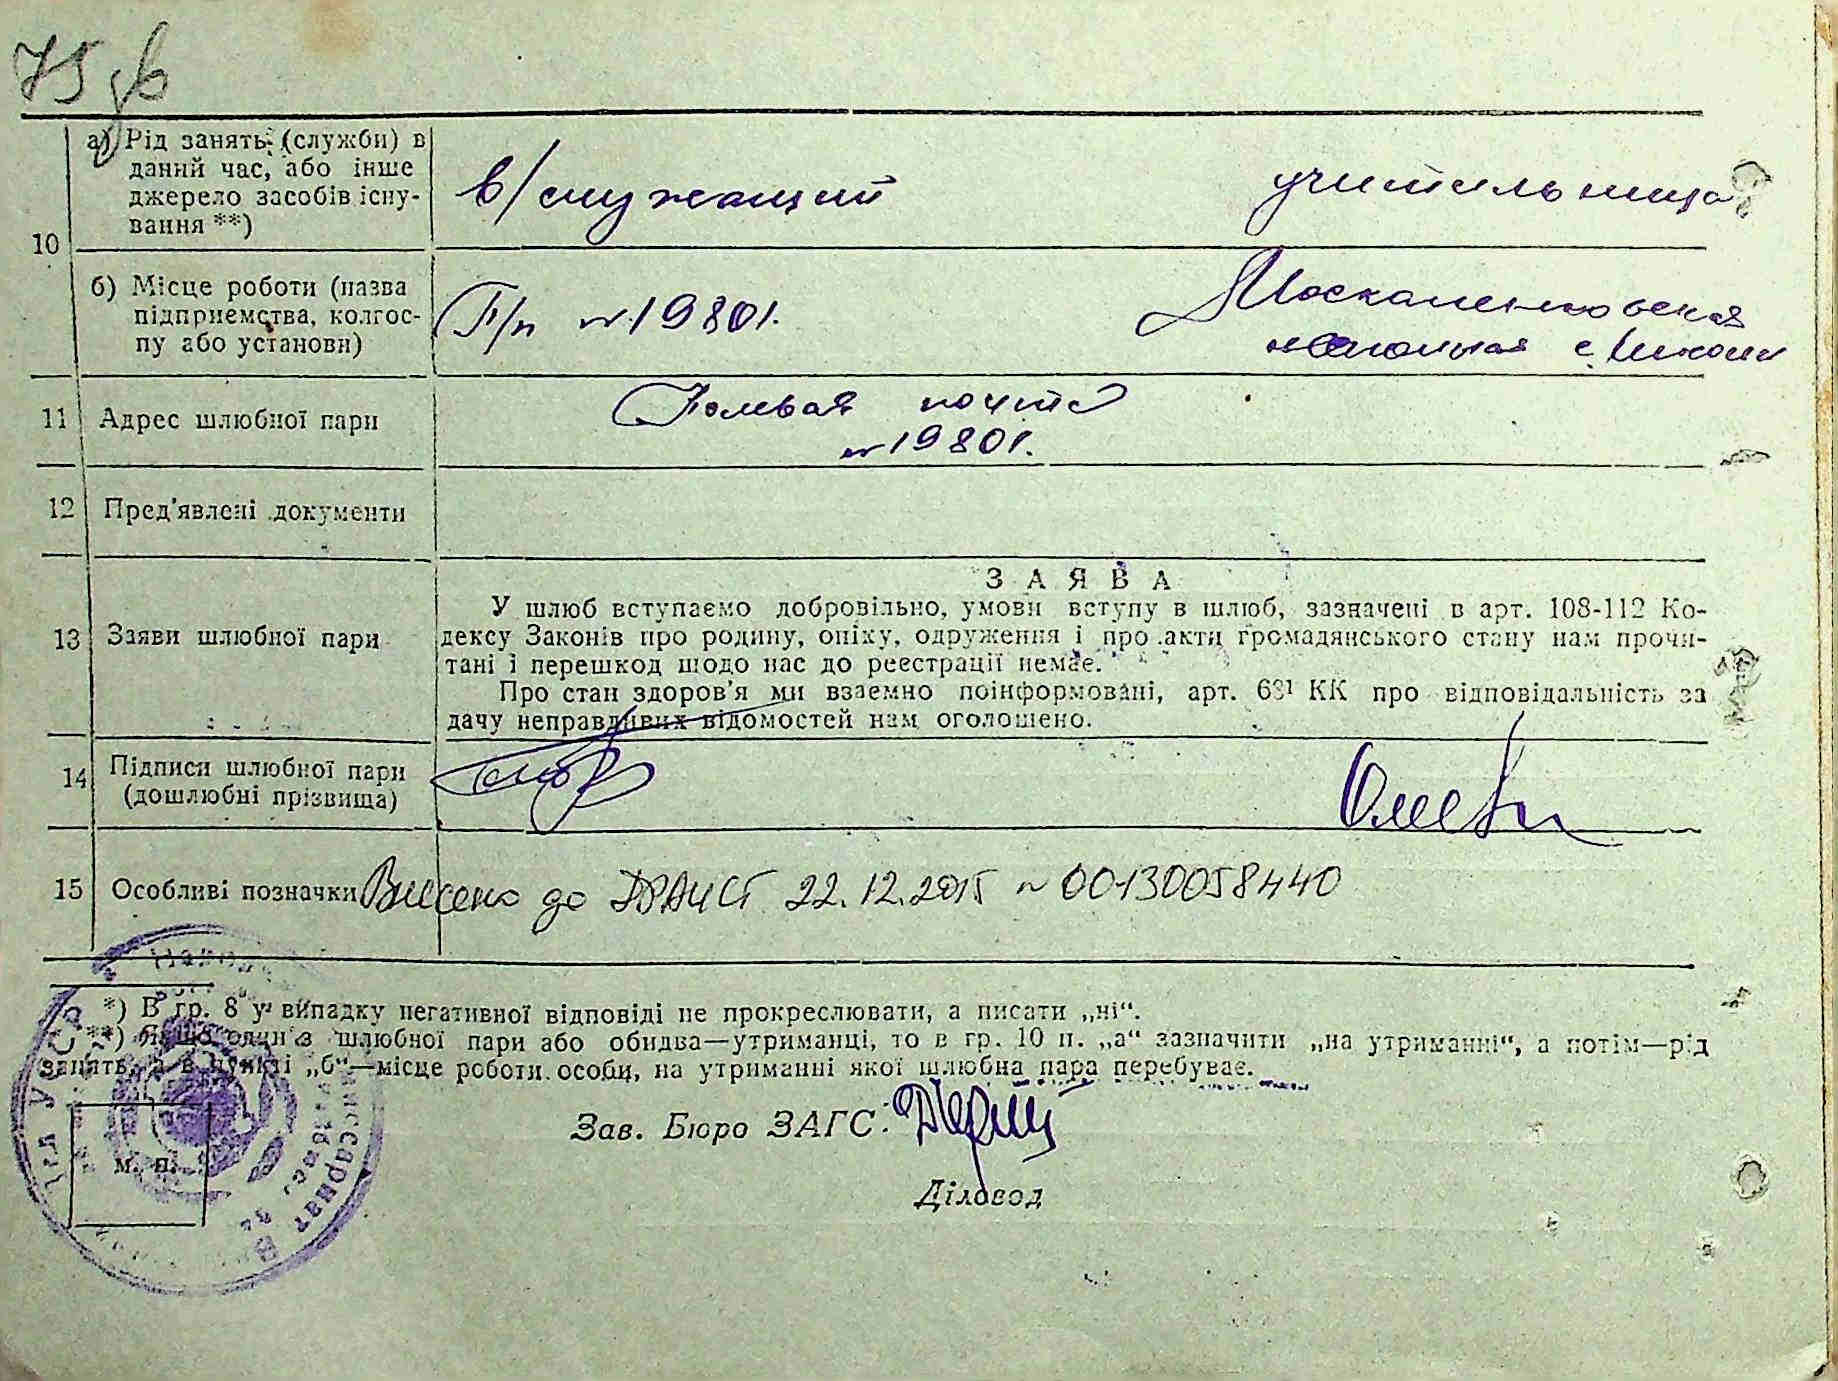 75
10
а) Рід занять (служби) в
даний час, або інше
джерело засобів існу-
вання **)
в/служащий
учительница
б) Місце роботи (назва
підприємства, колгос-
пу або установи)
П/п № 19801.
Москаленковская
неполная с. школа
11 Адрес шлюбної пари
Полевая почта
№ 19801.
12 Пред'явлені документи
13 Заяви шлюбної пари
ЗАЯВА
У шлюб вступаємо добровільно, умови вступу в шлюб, зазначені в арт. 108-112 Ко-
дексу Законів про родину, опіку, одруження і про акти громадянського стану нам прочи-
тані і перешкод щодо нас до реєстрації немає.
Про стан здоров'я ми взаємно поінформовані, арт. 68¹ КК про відповідальність за
дачу неправдивих відомостей нам оголошено.
14 Підписи шлюбної пари
(дошлюбні прізвища)
15 Особливі позначки Внесено до ДРАЦСГ 22.12.2015 № 00130058440
*) В гр. 8 у випадку негативної відповіді не прокреслювати, а писати „ні“.
**) Якщо один з шлюбної пари або обидва—утриманці, то в гр. 10 п. „а“ зазначити „на утриманні“, а потім—рід
занять, а в пункті „б“—місце роботи особи, на утриманні якої шлюбна пара перебуває.
Зав. Бюро ЗАГС:
м. п.
Діловод